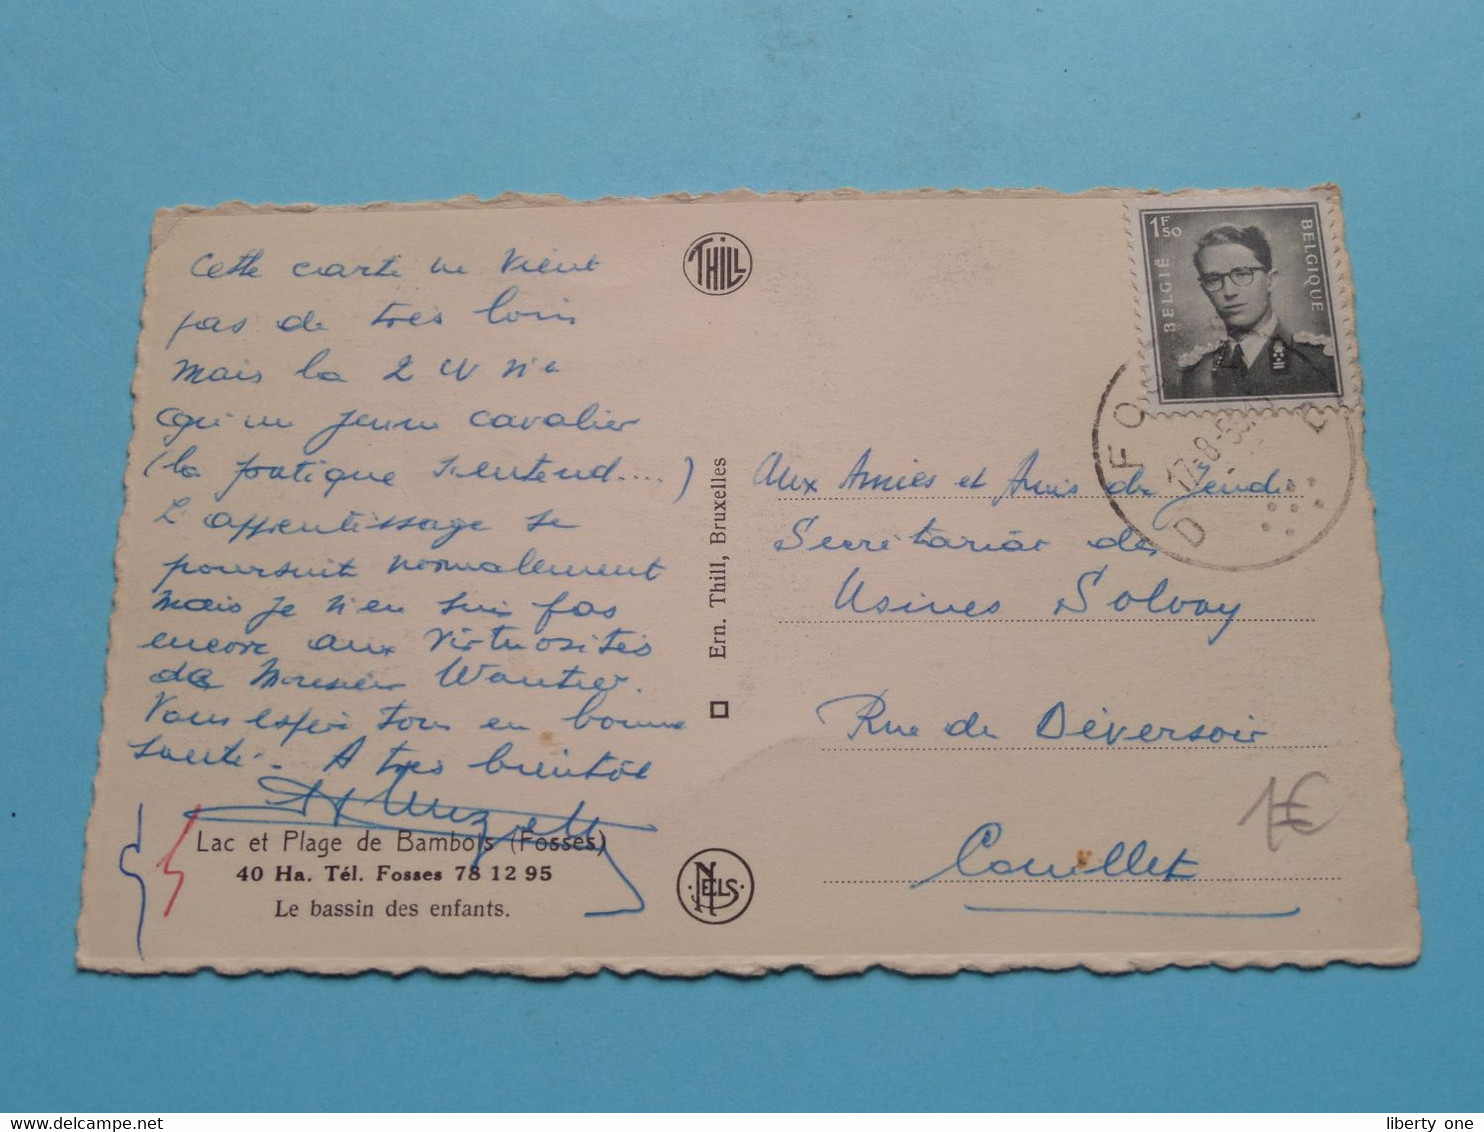 Cette carte ne vient
pas de très loin
mais la 2 CV n'a
qu'un jeune cavalier
(la pratique s'entend....)
L'apprentissage se
poursuit normalement
mais je n'en suis pas
encore aux virtuosités
de Monsieur Wautier.
Vous espère tous en bonne
santé. A très bientôt
Lac et Plage de Bambois (Fosses)
40 Ha. Tél. Fosses 78 12 95
Le bassin des enfants.
THILL
Ern. Thill, Bruxelles
NELS
1F50
BELGIË
BELGIQUE
FO
17-8-5
D
B
Aux Amies et Amis du
Secrétariat des
Usines Solvay
Rue du Déversoir
Couillet
1€
liberty one